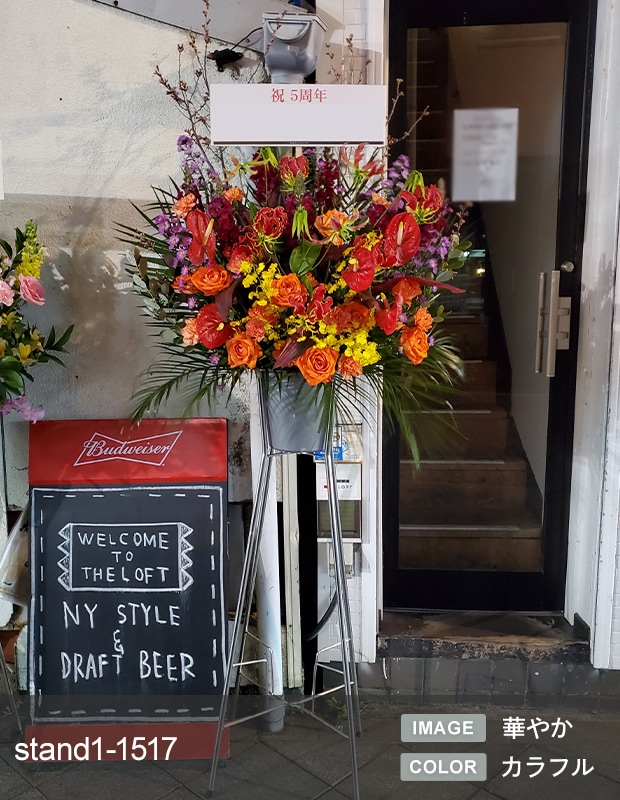 祝 5周年
Budweiser
WELCOME
TO
THE LOFT
NY STYLE
&
DRAFT BEER
stand1-1517
IMAGE 華やか
COLOR カラフル